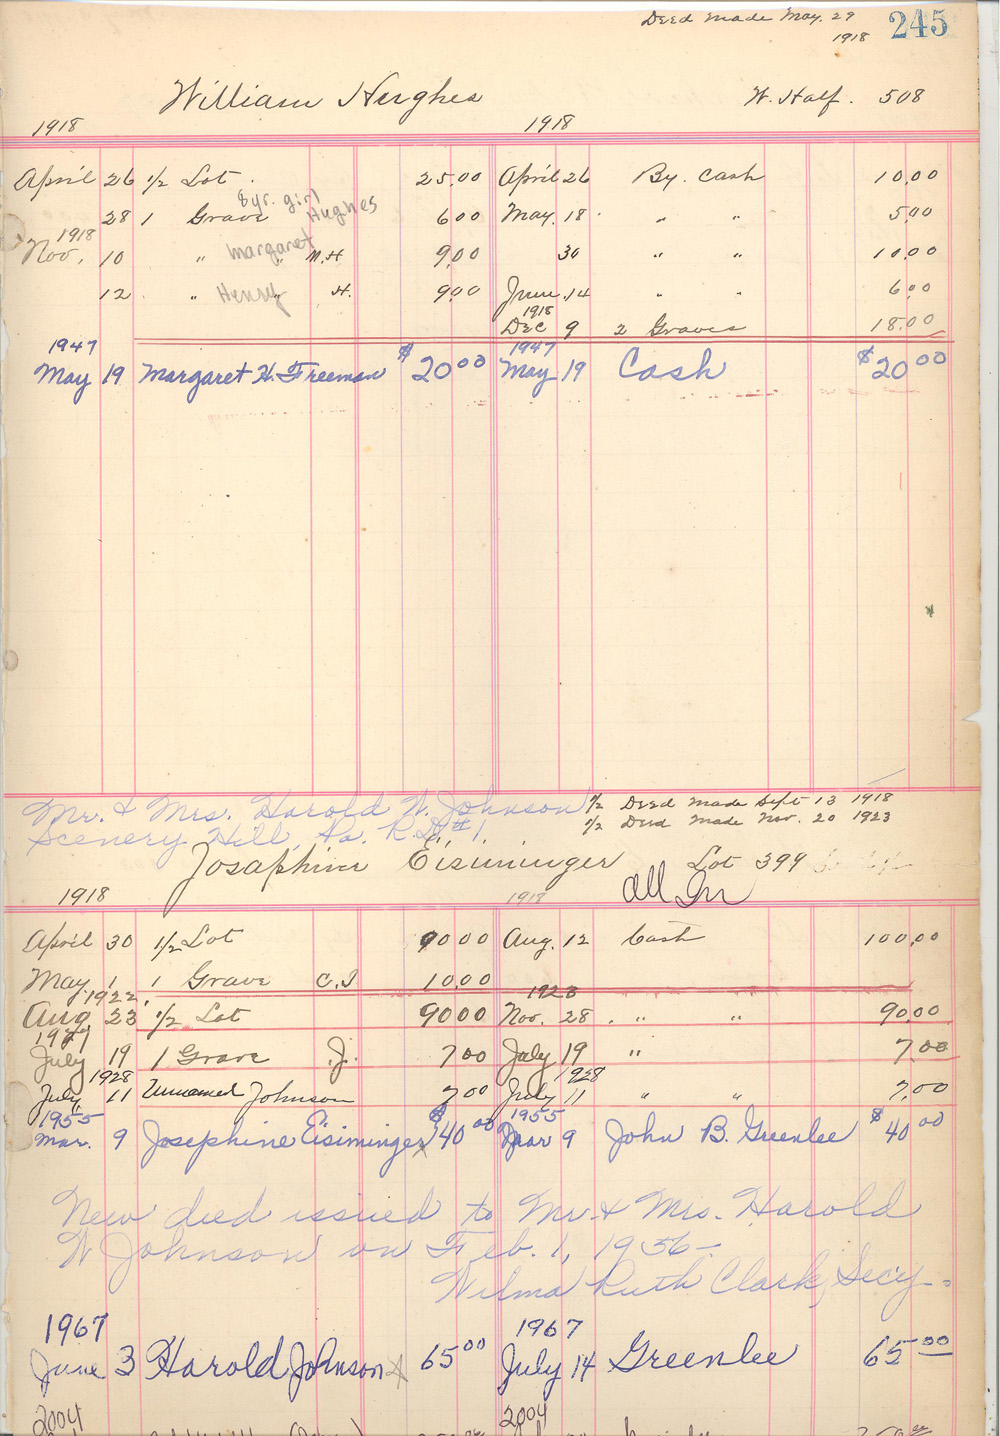 Deed Made May. 29 245
1918
William Hughes W. Half. 508
1918 1918
April 26 1/2 Lot. 25.00 April 26 By. Cash 10.00
8yr. girl
28 1 Grave Hughes 6 00 May. 18 " " 5.00
1918
Nov. 10 " Margaret " M.H 9.00 30 " " 10.00
12 " Henry " H. 9.00 June. 14 " " 6.00
1918
Dec 9 2 Graves 18.00
1947 1947
May 19 Margaret H. Freeman $20 00 May 19 Cash $20 00
Mr. & Mrs. Harold W. Johnson 1/2 Deed Made Sept 13 1918
Scenery Hill, Pa. R.D.#1. 1/2 Deed Made Nov. 20 1923
Josephine Eisiminger Lot 399
All In
1918 1918
April 30 1/2 Lot 90 00 Aug. 12 Cash 100.00
May. 1 1 Grave 10.00
1922. 1923
Aug 23 1/2 Lot 90 00 Nov. 28 . " " 90.00
1927
July 19 1 Grave .J. 7 00 July 19 " 7.00
1928 1928
July 11 Unnamed Johnson 7 00 July 11 " " 7.00
1955 1955
Mar. 9 Josephine Eisiminger $40 00 Mar 9 John B. Greenlee $40 00
New deed issued to Mr. & Mrs. Harold
W Johnson on Feb. 1, 1956-
Wilma Ruth Clark, Secy-
1967 1967
June 3 Harold Johnson 65 00 July 14 Greenlee 65 00
2004 2004